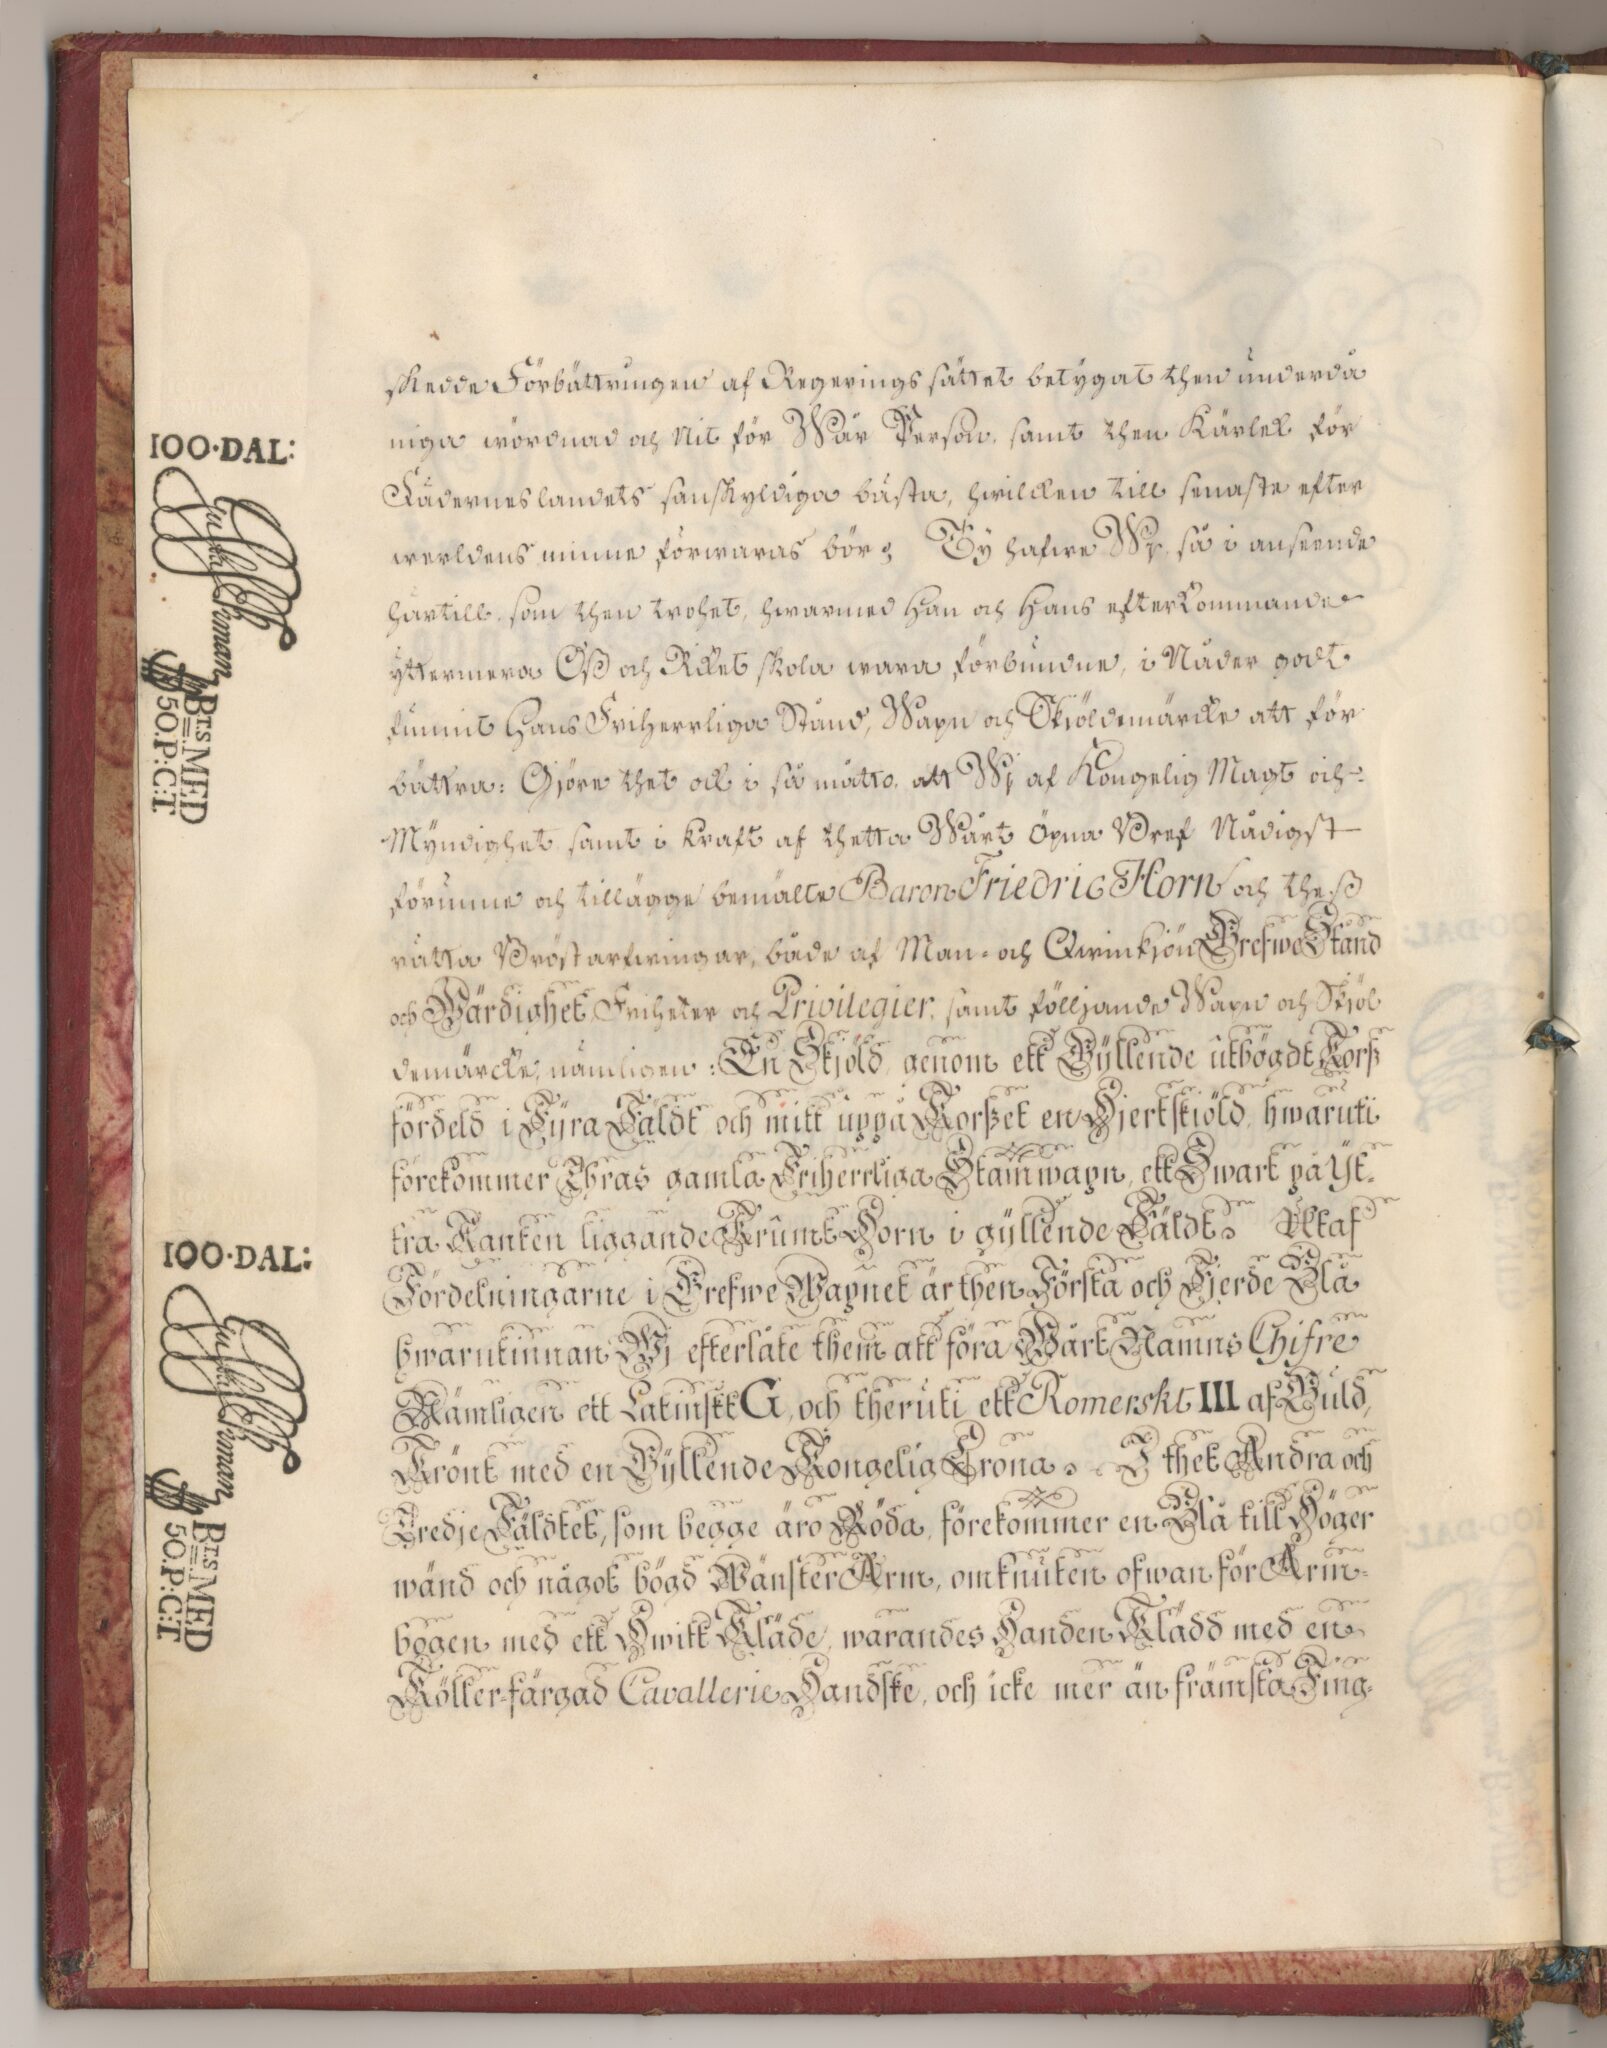 100·DAL:
Bts MED
50.P:C:T
100·DAL:
Bts MED
50.P:C:T
skedde Förbättringen af Regeringssättet betygat then underdå
niga wördnad och Nit för Wår Person, samt then Kärlek för
Fäderneslandets sanskyldiga bästa, hwilcken till senaste efter
werldens minne förwaras bör; Ty hafwe Wj, så i anseende
härtill, som then trohet, hwarmed Han och Hans efterkommande
yttermera Oß och Riket skola wara förbundne, i Nåder godt
funnit Hans Friherrliga Stånd, Wapn och Skjöldemärcke att för
bättra: Gjöre thet ock i så måtto, att Wj af Kongelig Magt och
Myndighet samt i Kraft af thetta Wårt Öpna Bref Nådigst
förunne och tillägge bemälte Baron Friedric Horn och theß
rätta Bröstarfwingar, både af Man- och Qwinkjön Grefwe Stånd
och Wärdighet, Friheter och Privilegier, samt följjande Wapn och Skjöl
demärcke, nämligen: En Skjöld, genom ett Gyllende utbögdt Korß
fördeld i Fyra Fäldt, och mitt uppå Korßet en Hjertskiöld, hwaruti
förekommer Theras gamla Friherrliga Stamwapn, ett Swart på Yt-
tra Kanten liggande Krumt Horn i gyllende Fäldt. Utaf
Fördelningarne i Grefwe Wapnet är then Första och Fjerde Blå
hwarutinnan Wj efterlåte them att föra Wårt Namns Chifre
Nämligen ett Latinskt G, och theruti ett Romerskt III af Guld,
Krönt med en Gyllende Kongelig Crona. I thet Andra och
Tredje Fäldtet, som begge äro Röda, förekommer en Blå till Höger
wänd och något bögd Wänster Arm, omknuten ofwan för Arm-
bogen med ett Hwitt Kläde, warandes Handen Klädd med en
Köller-färgad Cavallerie Handske, och icke mer än främsta Fing-